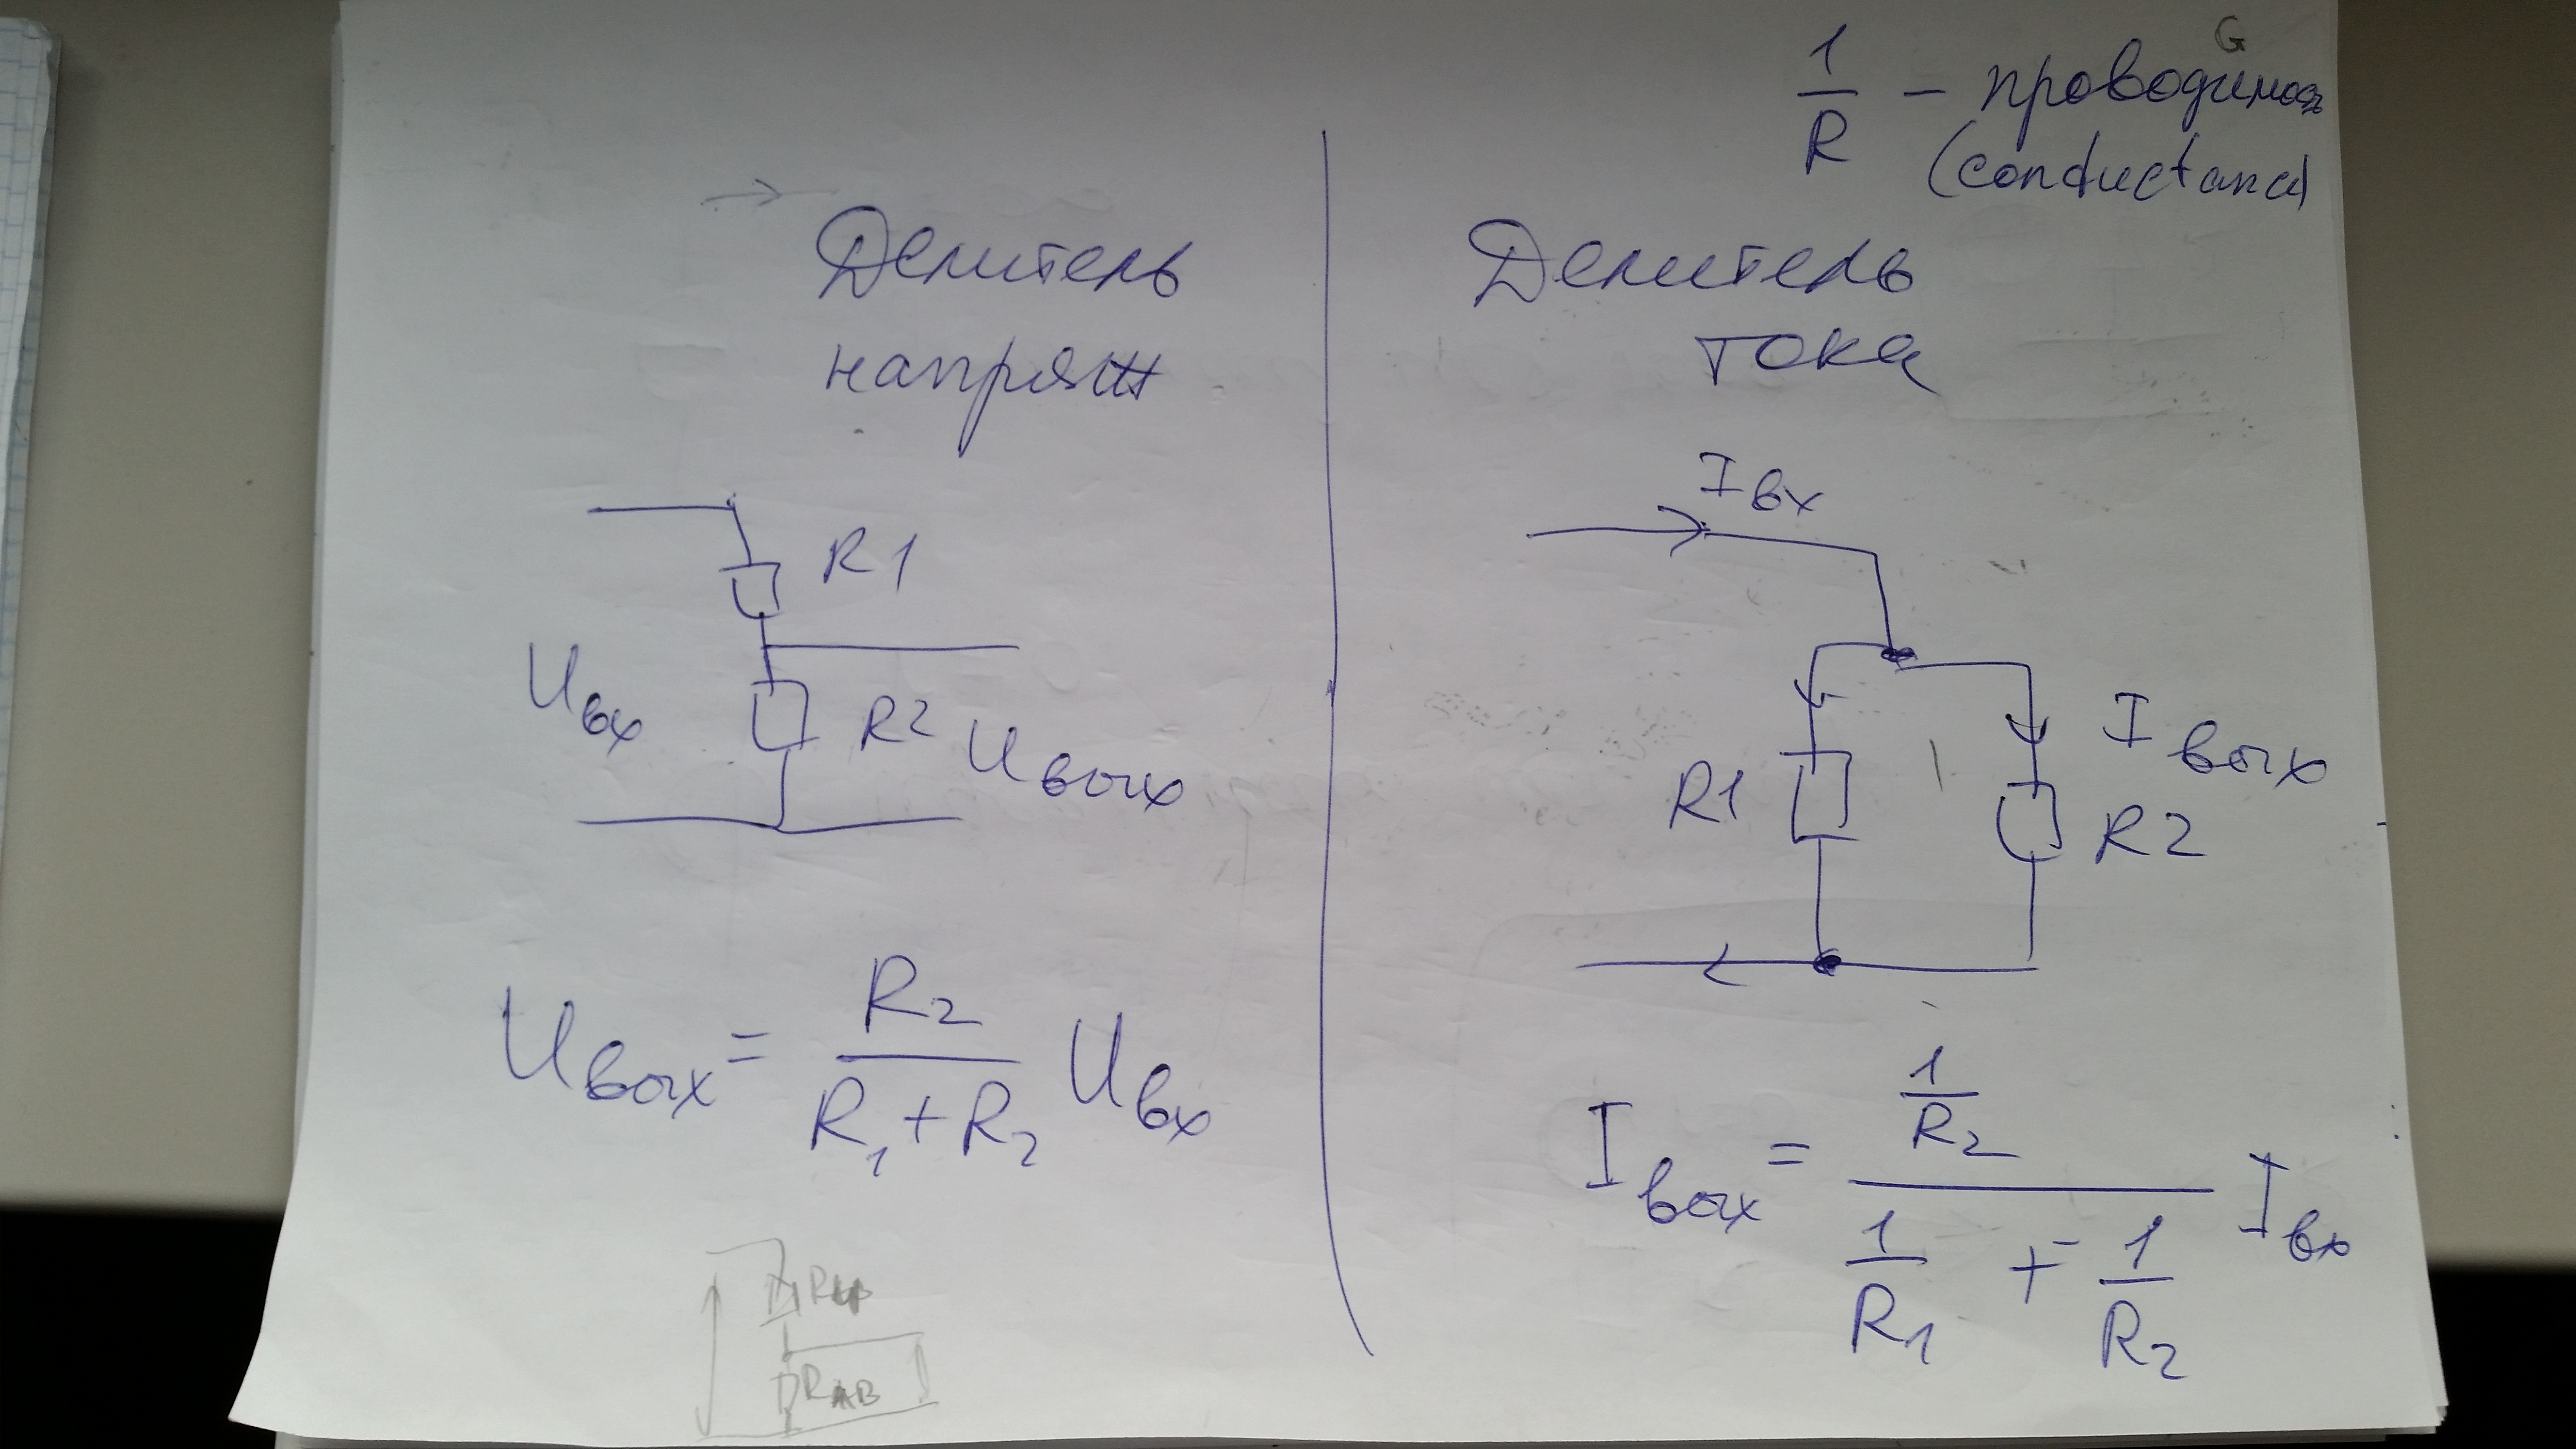 G
1/R – проводимость
(conductance)
Делитель
напряж
R1
Uвх
R2
Uвых
Uвых = R2/(R1+R2) Uвх
Делитель
тока
Iвх
Iвых
R1
R2
Iвых = (1/R2)/(1/R1 + 1/R2) Iвх